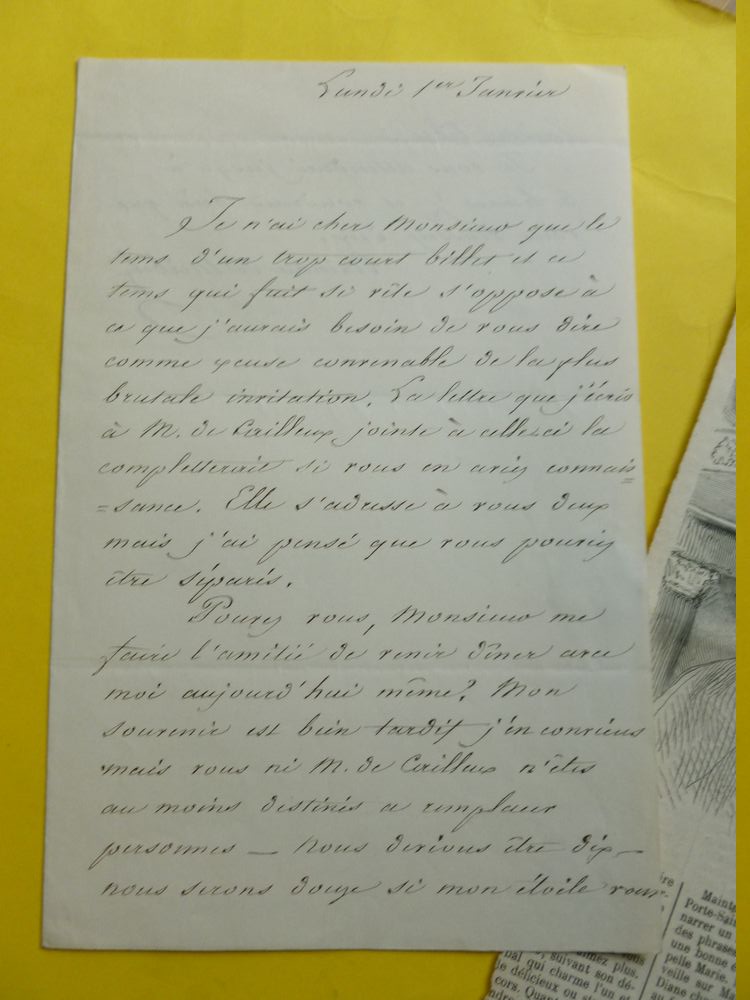 Lundi 1er Janvier
Je n'ai cher Monsieur que le
tems d'un trop court billet et ce
tems qui fuit si vîte s'oppose à
ce que j'aurais besoin de vous dire
comme excuse convenable de la plus
brutale invitation. La lettre que j'écris
à M. de Cailleux, jointe à celle-ci la
completterait si vous en aviez connais
=sance. Elle s'adresse à vous deux
mais j'ai pensé que vous pouviez
être séparés.
Pouvez vous, Monsieur me
faire l'amitié de venir dîner avec
moi aujourd'hui même? Mon
souvenir est bien tardif j'en conviens
mais vous ni M. de Cailleux n'êtes
au moins destinés a remplacer
personnes — nous devions être dix —
nous serons douze si mon étoile
Maint
Porte-Sai
narrer un
des phrase
une bonne
pelle Marie.
veille sur M
Diane
plus.
suivant son dé-
bal qui charme l'un
le délicieux ou
cors. Quan